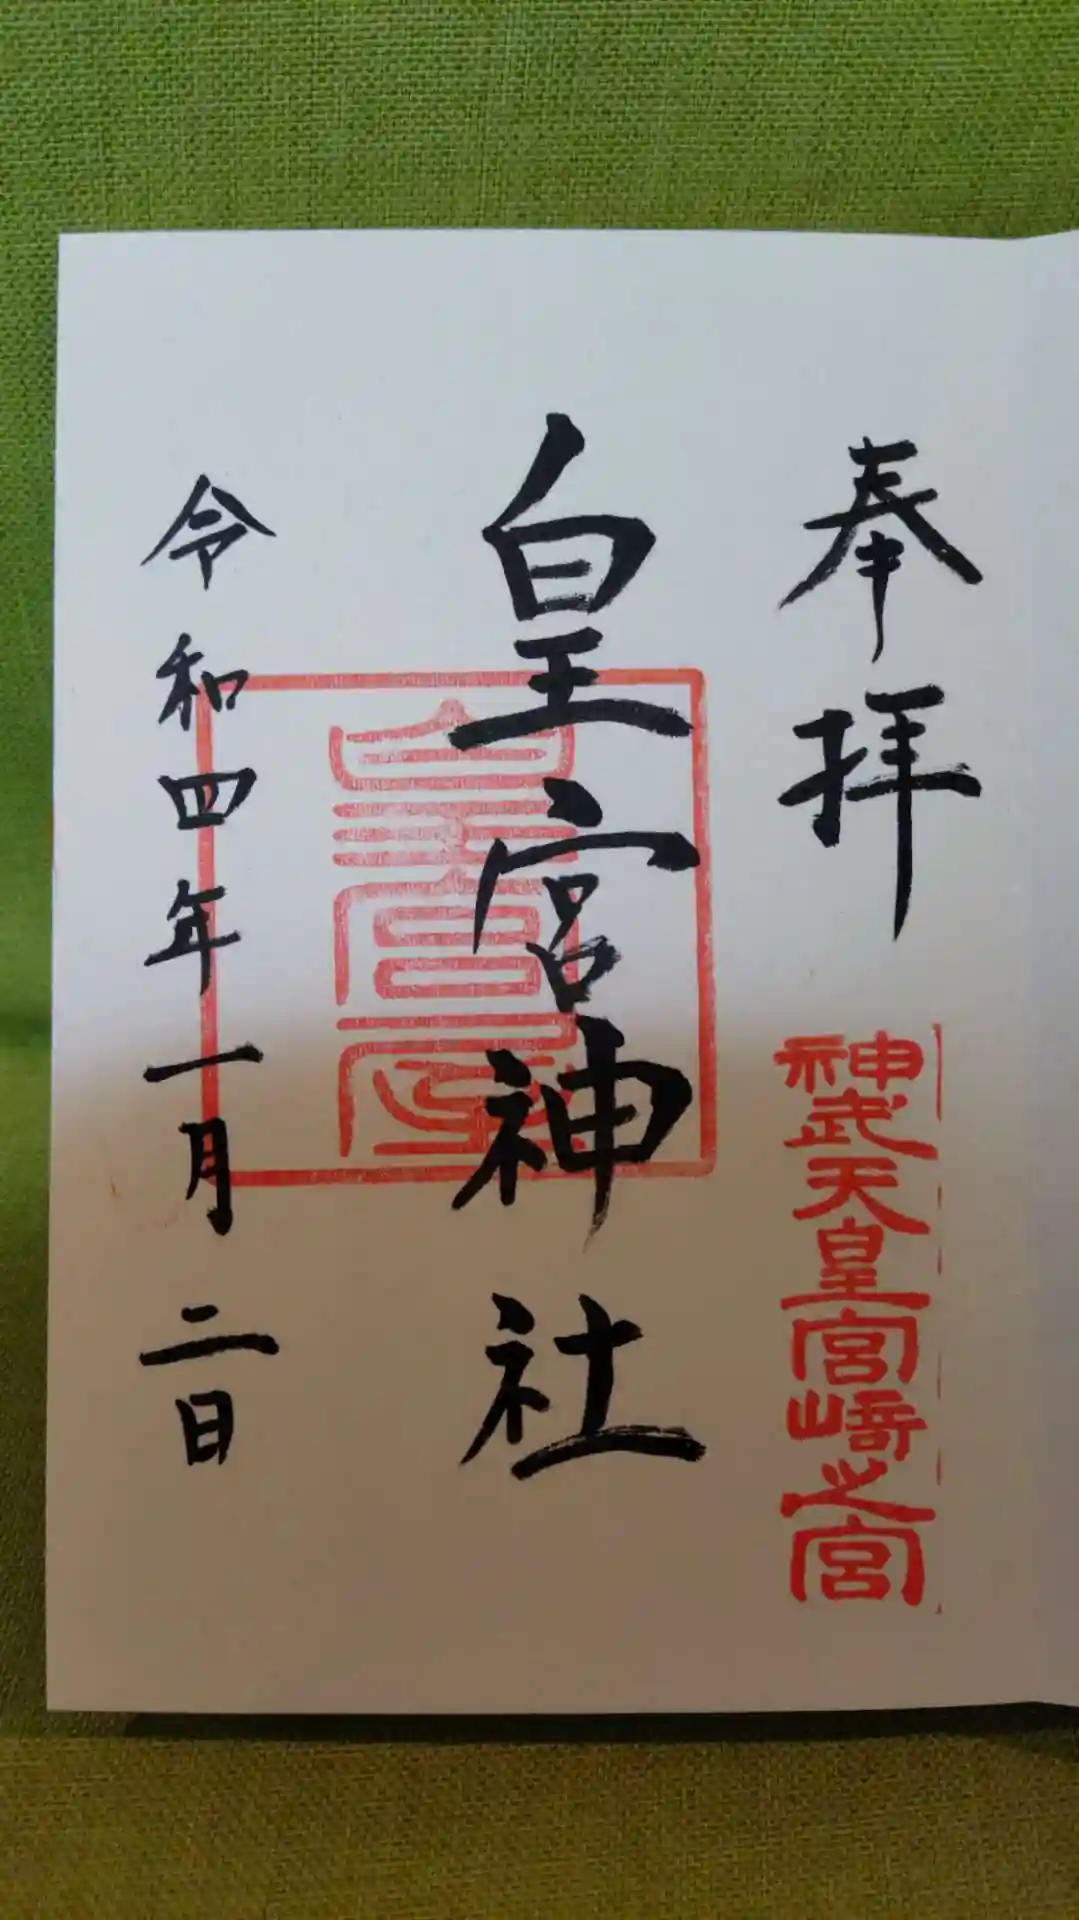 奉拝
神武天皇宮崎之宮
皇宮神社
皇宮屋
令和四年一月二日